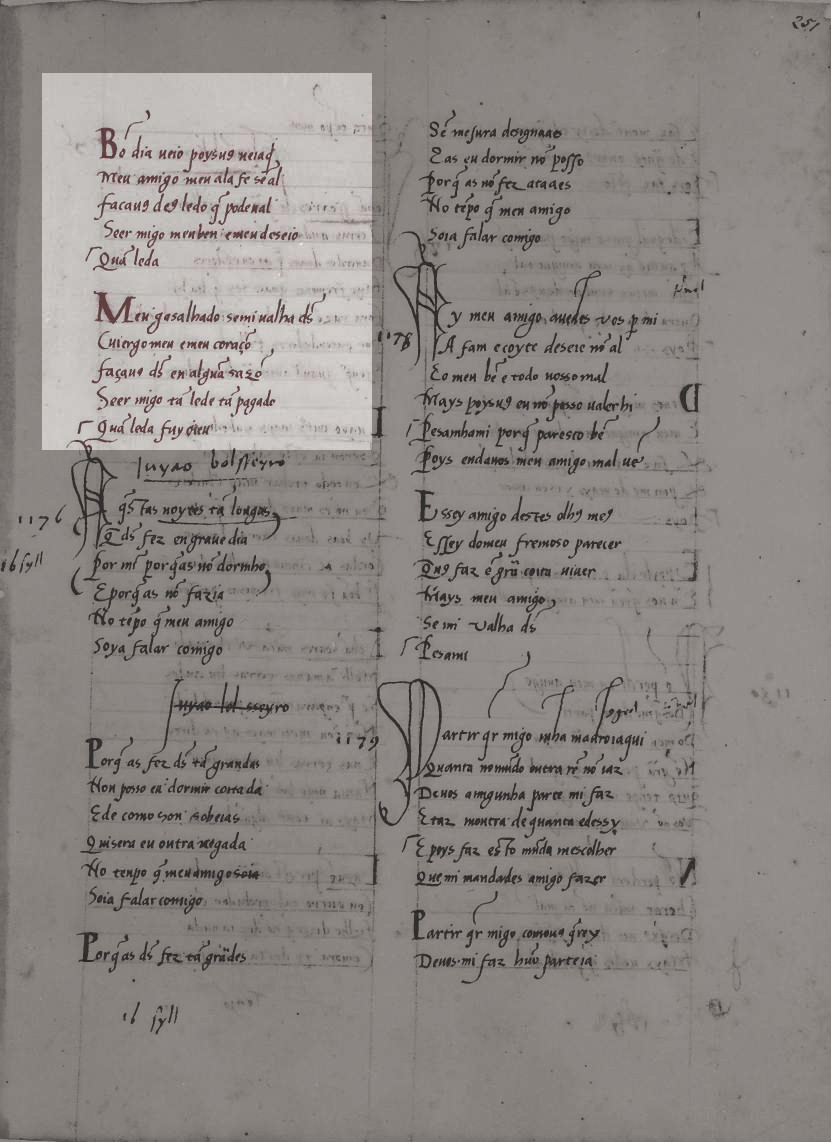 251
Bõ dia veio poys uꝯ veiaq̃
Meu amigo meu ala fe sẽ al
Façauꝯ deꝯ ledo q̃ pode nal
Seer migo meu ben e meu deseio
Quã leda
Meu gasalhado se mi ualha ds̃
Cuiergo meu e meu coraçõ
façauꝯ ds̃ en algũa sazõ
Seer migo tã lede tã pagado
Quã leda fuy oieu
Juyao bolsseyro
1176
Aq̃stas noytes tã longas
Q̃ ds̃ fez en graue dia
16 syll
Por mi porq̃ as nõ dormho
E porq̃ as nõ fazia
No tẽpo q̃ meu amigo
Soya falar comigo
Juyao bolsseyro
Porq̃ as fez ds̃ tã grandes
Non posso eu dormir coitada
E de como son sobeias
Quisera eu outra uegada
No tenpo q̃ meu amigo soia
Soia falar comigo
Porq̃ as ds̃ fez tã grãdes
16 syll
Sẽ mesura desiguaaes
E as eu dormir nõ posso
Porq̃ as nõ fez ataaes
No tẽpo q̃ meu amigo
Soia falar comigo
1178
Ay meu amigo auedes vos p̲ mi
A fam e coyta e deseie nõ al
E o meu bẽ e todo uosso mal
Mays poys uꝯ eu nõ posso ualer hi
Pesamhami porq̃ paresco bẽ
Poys endauos meu amigo mal uẽ
E ssey amigo destes olhꝯ meꝯ
E ssey do meu fremoso parecer
Quꝯ faz ẽ grã coita uiuer
Mays meu amigo
Se mi valha ds̃
Pesami
1179
Partir q̃r migo mha madr oiaqui
Quanta no mũdo outra rẽ nõ iaz
De uos amig unha parte mi faz
E faz moutra de quanta e dessy
E poys faz esto mãda mescolher
Que mi mandades amigo fazer
Partir q̃r migo como uꝯ q̃rey
De uos mi faz hũa parte ia